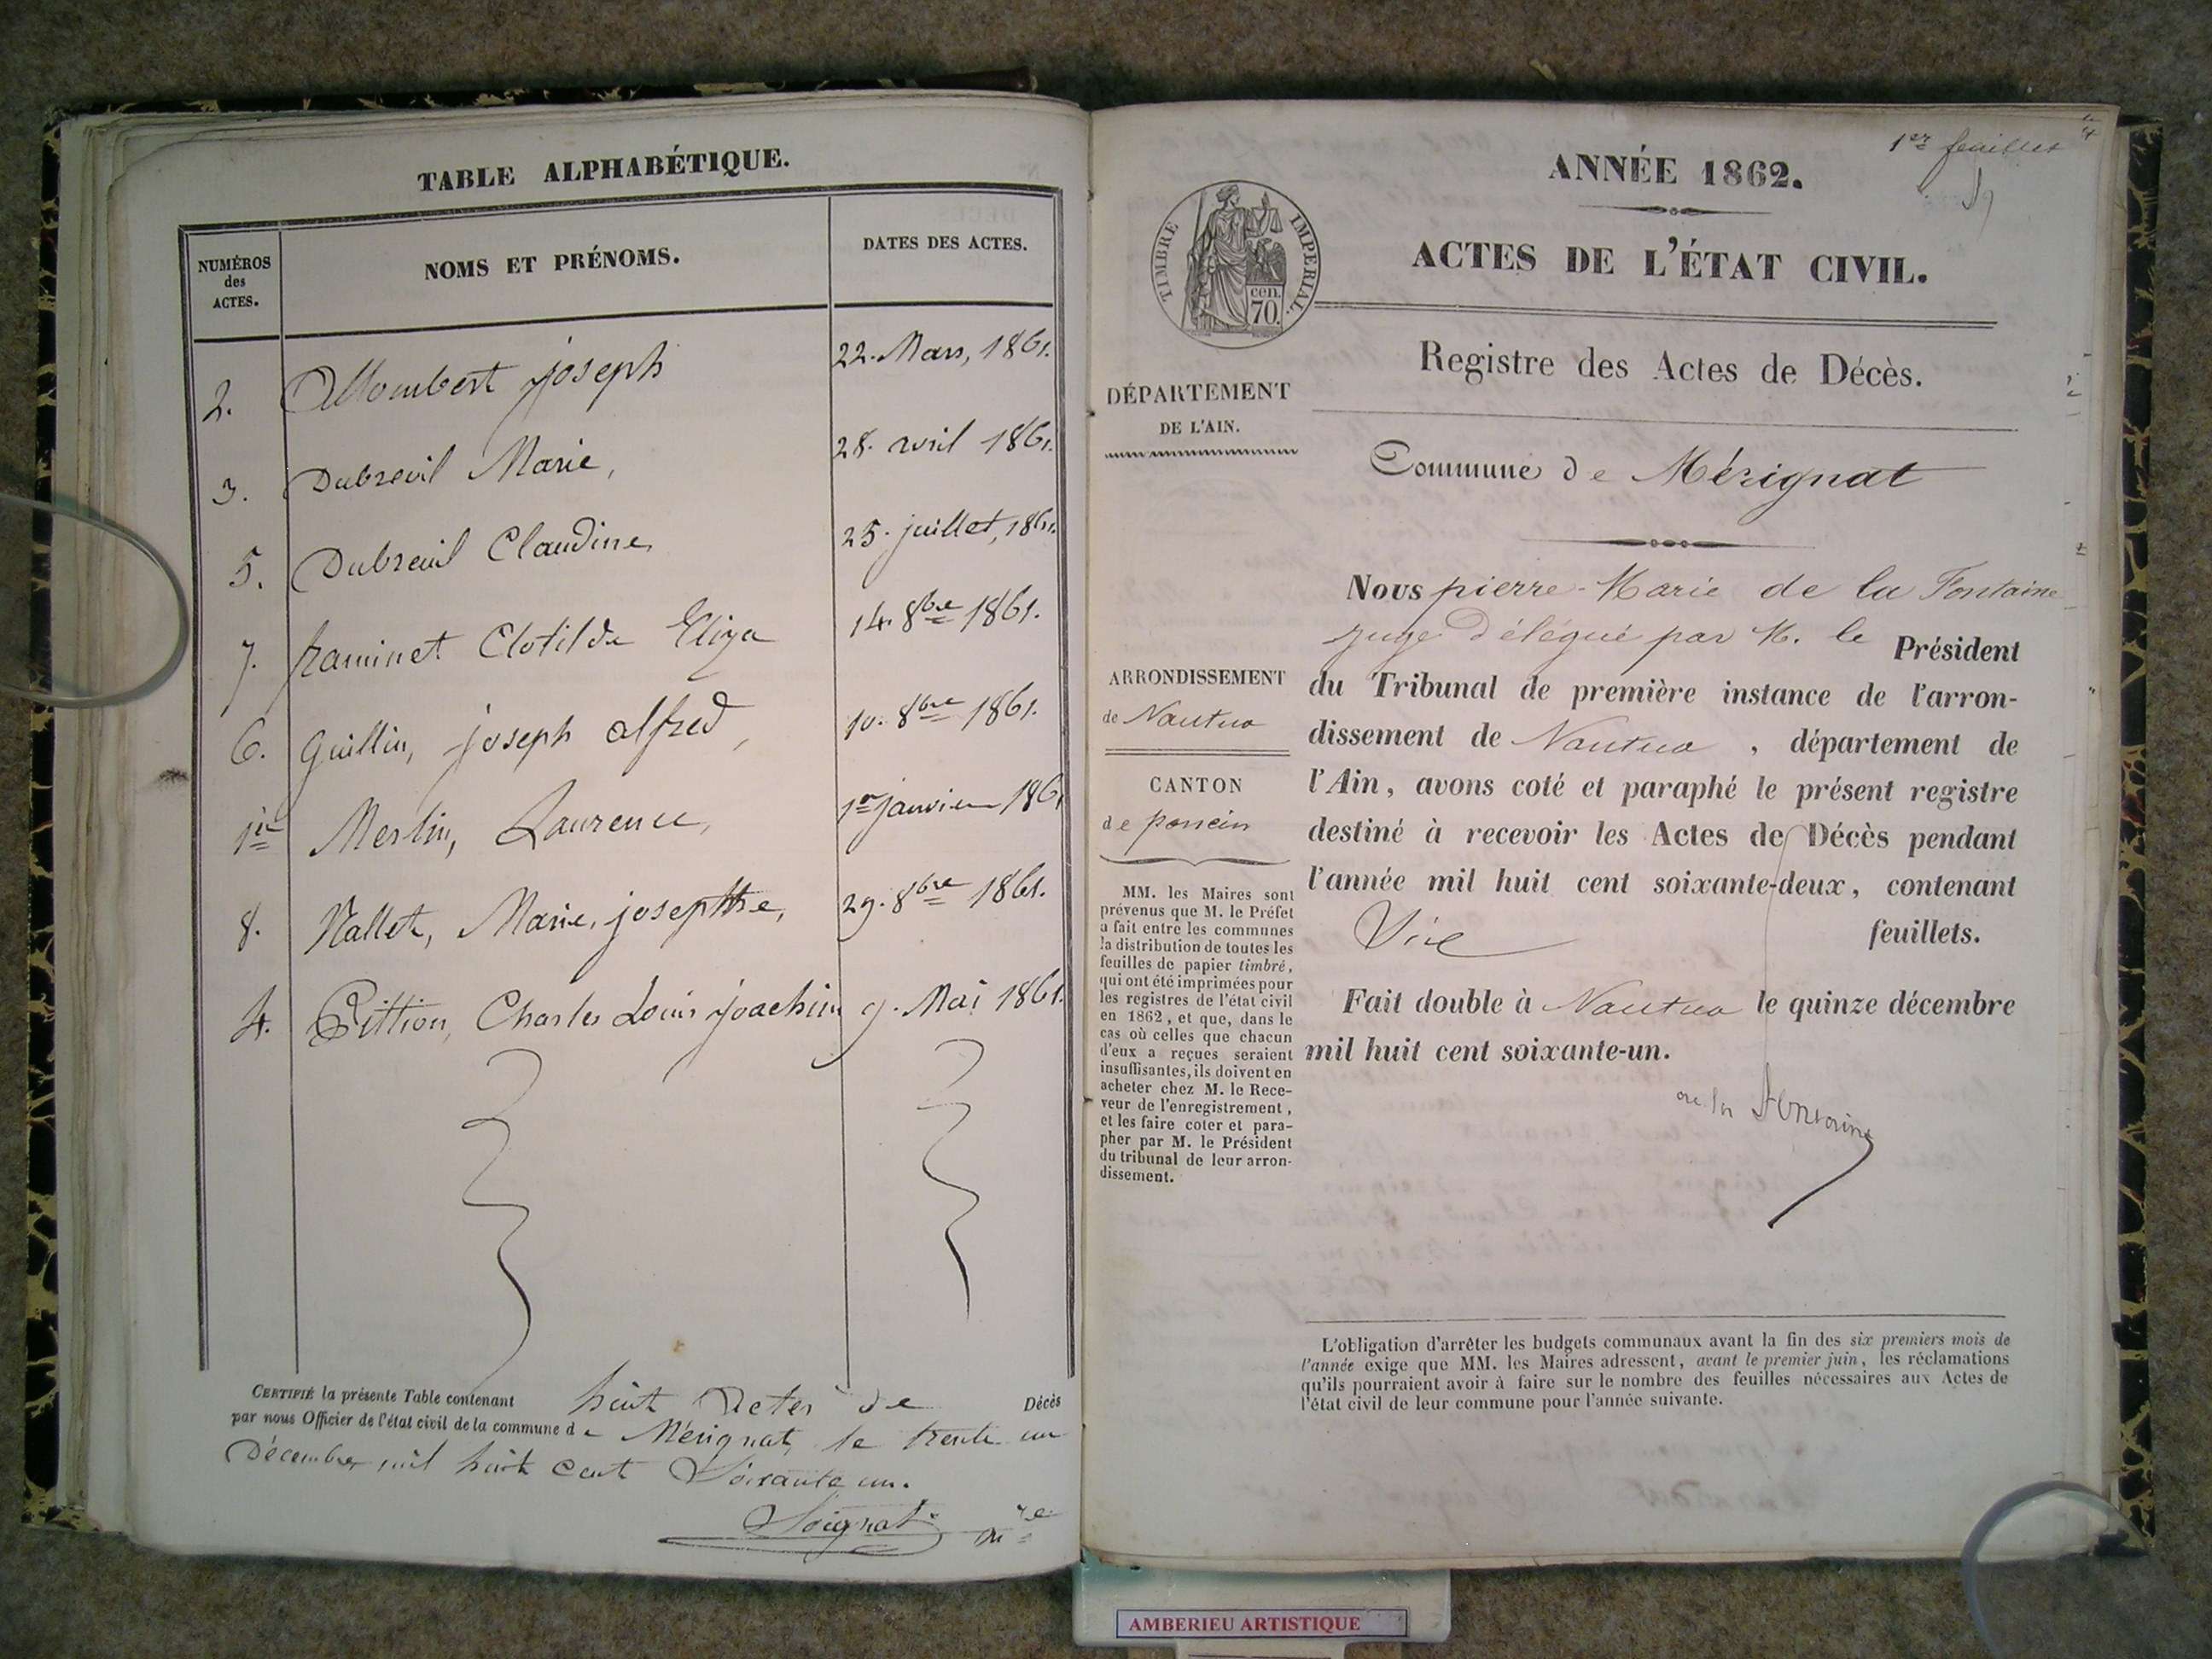 TABLE ALPHABÉTIQUE.
NUMÉROS des ACTES.
NOMS ET PRÉNOMS.
DATES DES ACTES.
2. Allombert joseph 22. Mars, 1861.
3. Dubreuil Marie, 28. avril 1861.
5. Dubreuil Claudine, 25. juillet, 1861.
7. framinet Clotilde Eliza 14. 8bre 1861.
6. Guillin, joseph alfred, 10. 8bre 1861.
1er Merlin, Laurence, 1er janvier 1861
8. Nallet, Marie, josepthe, 29. 8bre 1861.
4. Pittion, Charles Louis joachim 9. Mai 1861.
CERTIFIÉ la présente Table contenant huit Actes de Décès
par nous Officier de l'état civil de la commune de Mérignat, le trente un
Décembre mil huit cent Soixante un.
Soignat mre
1er feuillet
ANNÉE 1862.
TIMBRE IMPERIAL.
cen.
70.
ACTES DE L'ÉTAT CIVIL.
Registre des Actes de Décès.
DÉPARTEMENT
DE L'AIN.
Commune de Mérignat
ARRONDISSEMENT
de Nantua
CANTON
de poncin
MM. les Maires sont
prévenus que M. le Préfet
a fait entre les communes
la distribution de toutes les
feuilles de papier timbré,
qui ont été imprimées pour
les registres de l'état civil
en 1862, et que, dans le
cas où celles que chacun
d'eux a reçues seraient
insuffisantes, ils doivent en
acheter chez M. le Rece-
veur de l'enregistrement,
et les faire coter et para-
pher par M. le Président
du tribunal de leur arron-
dissement.
Nous pierre-Marie de la Fontaine
juge Délégué par M. le Président
du Tribunal de première instance de l'arron-
dissement de Nantua, département de
l'Ain, avons coté et paraphé le présent registre
destiné à recevoir les Actes de Décès pendant
l'année mil huit cent soixante-deux, contenant
feuillets.
Fait double à Nantua le quinze décembre
mil huit cent soixante-un.
de la Fontaine
L'obligation d'arrêter les budgets communaux avant la fin des six premiers mois de
l'année exige que MM. les Maires adressent, avant le premier juin, les réclamations
qu'ils pourraient avoir à faire sur le nombre des feuilles nécessaires aux Actes de
l'état civil de leur commune pour l'année suivante.
AMBERIEU ARTISTIQUE